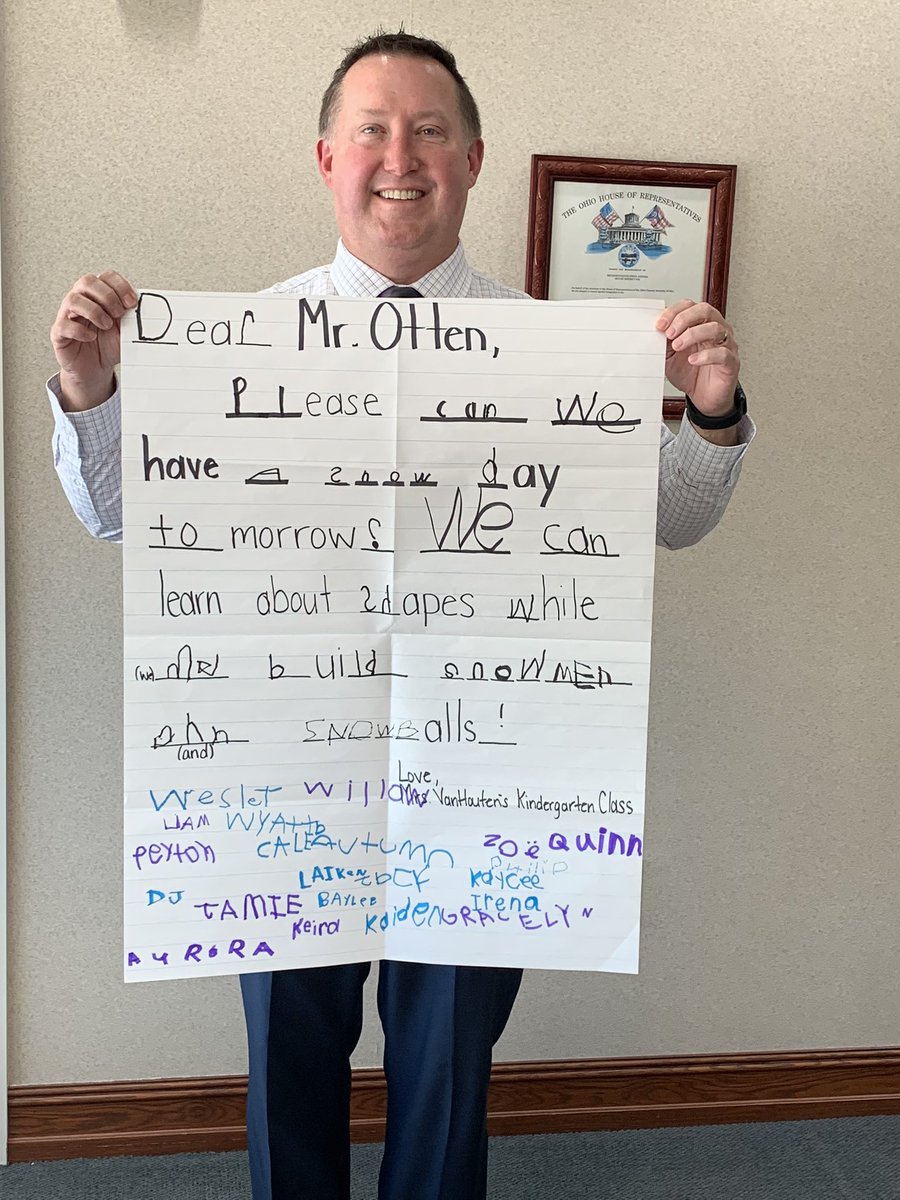 THE OHIO HOUSE OF REPRESENTATIVES
Dear Mr. Otten,
Please can We
have a snow day
to morrow? We can
learn about shapes while
(we) build snowMEn
ohn SNOWBalls!
(and)
Love,
Mrs. VanHouten's Kindergarten Class
Wesley Willow
LIAM WYATT
Peyton CALEB AUTUMN Zoë Quinn
Philip
LAIKen Kaycee
DJ JAMIE BAYLEE Irena
Keira Kaiden GRACELYN
AURORA